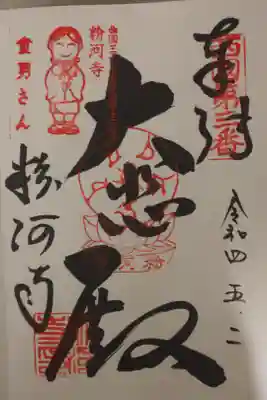 奉拝
西国第三番
令和四、五、二
大悲殿
粉河寺
粉河寺
童男さん